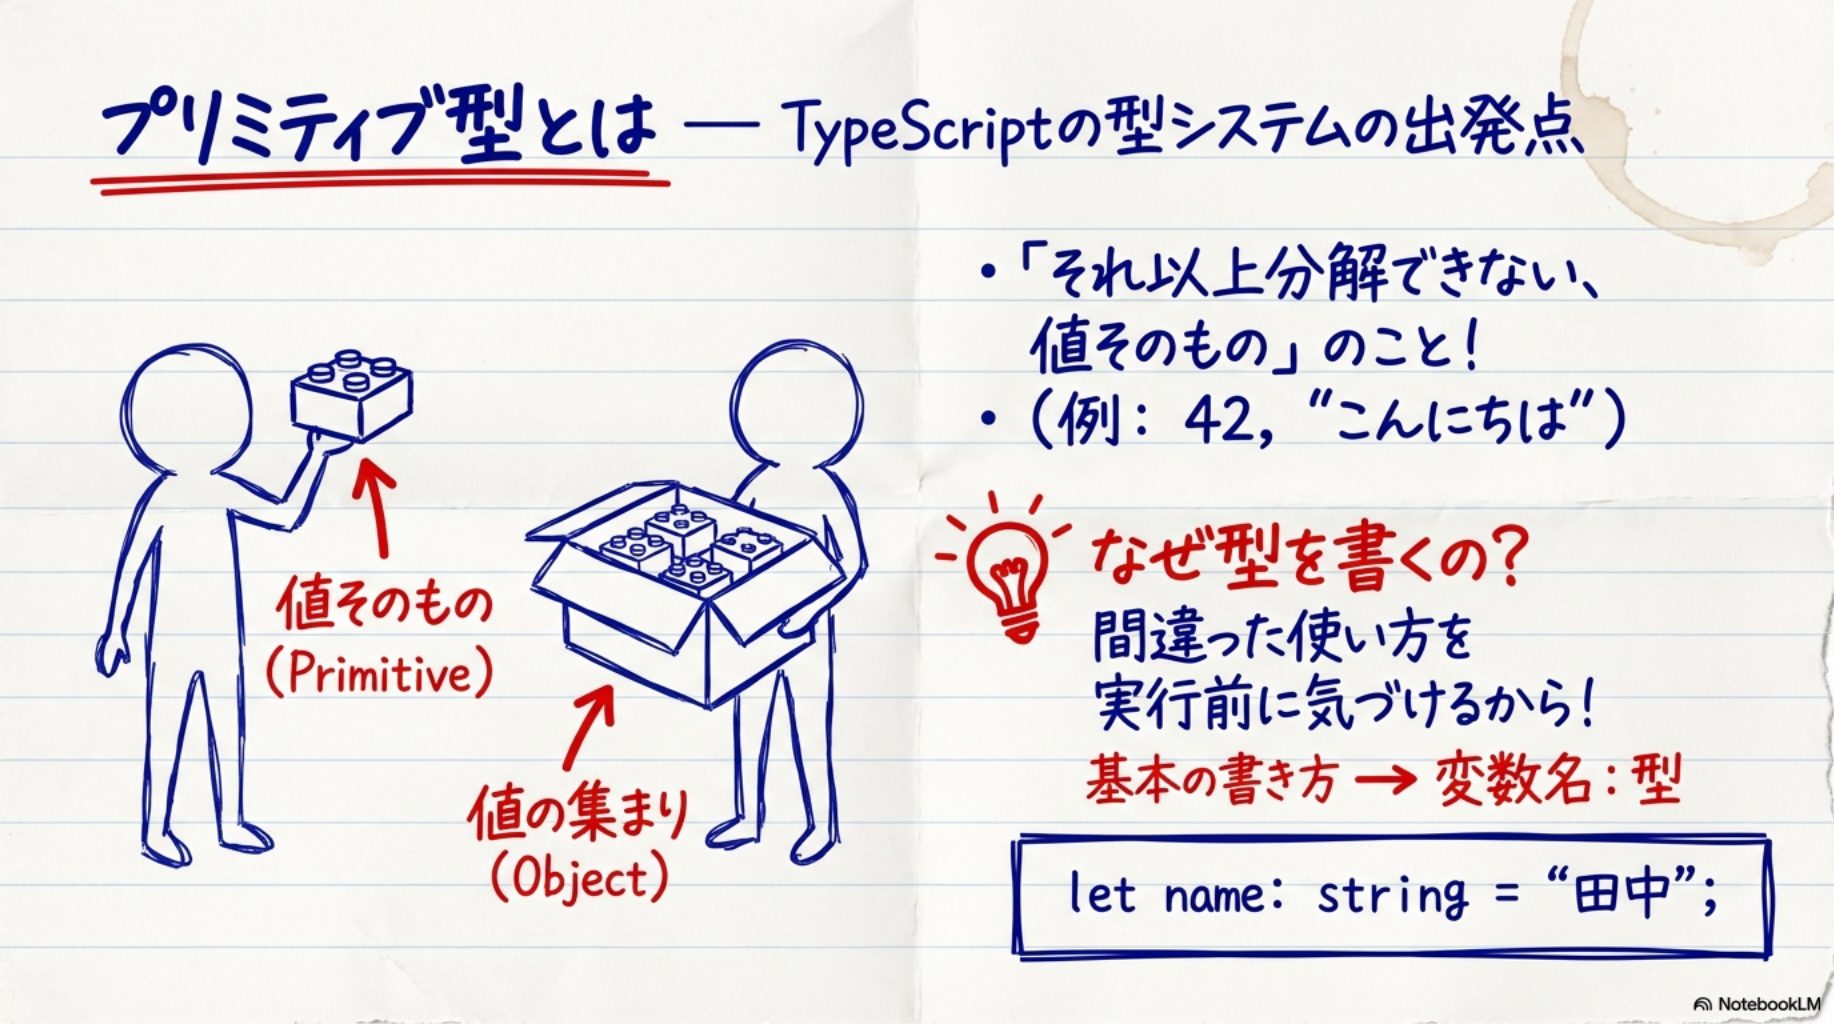 プリミティブ型とは — TypeScriptの型システムの出発点
・「それ以上分解できない、
値そのもの」のこと!
・(例: 42, "こんにちは")
値そのもの
(Primitive)
値の集まり
(Object)
なぜ型を書くの?
間違った使い方を
実行前に気づけるから!
基本の書き方 → 変数名:型
let name: string = “田中”;
NotebookLM